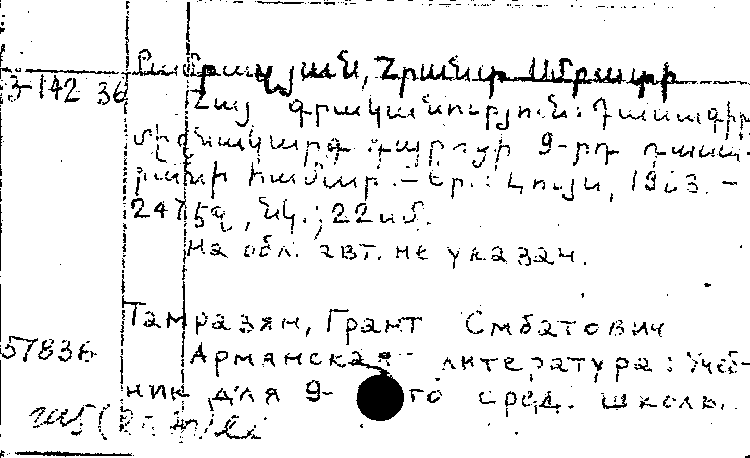 Թամրազյան, Հրանտ Սմբատի
3-142 36
Հայ գրականություն: Դասագիրք
միջնակարգ դպրոցի 9-րդ դասա-
րանի համար. – Եր.: Լույս, 1963. –
247 էջ, նկ.; 22 սմ.
На обл. авт. не указан.
Тамразян, Грант Смбатович
57836
Армянская литература: Учеб-
ник для 9- го сред. школы.